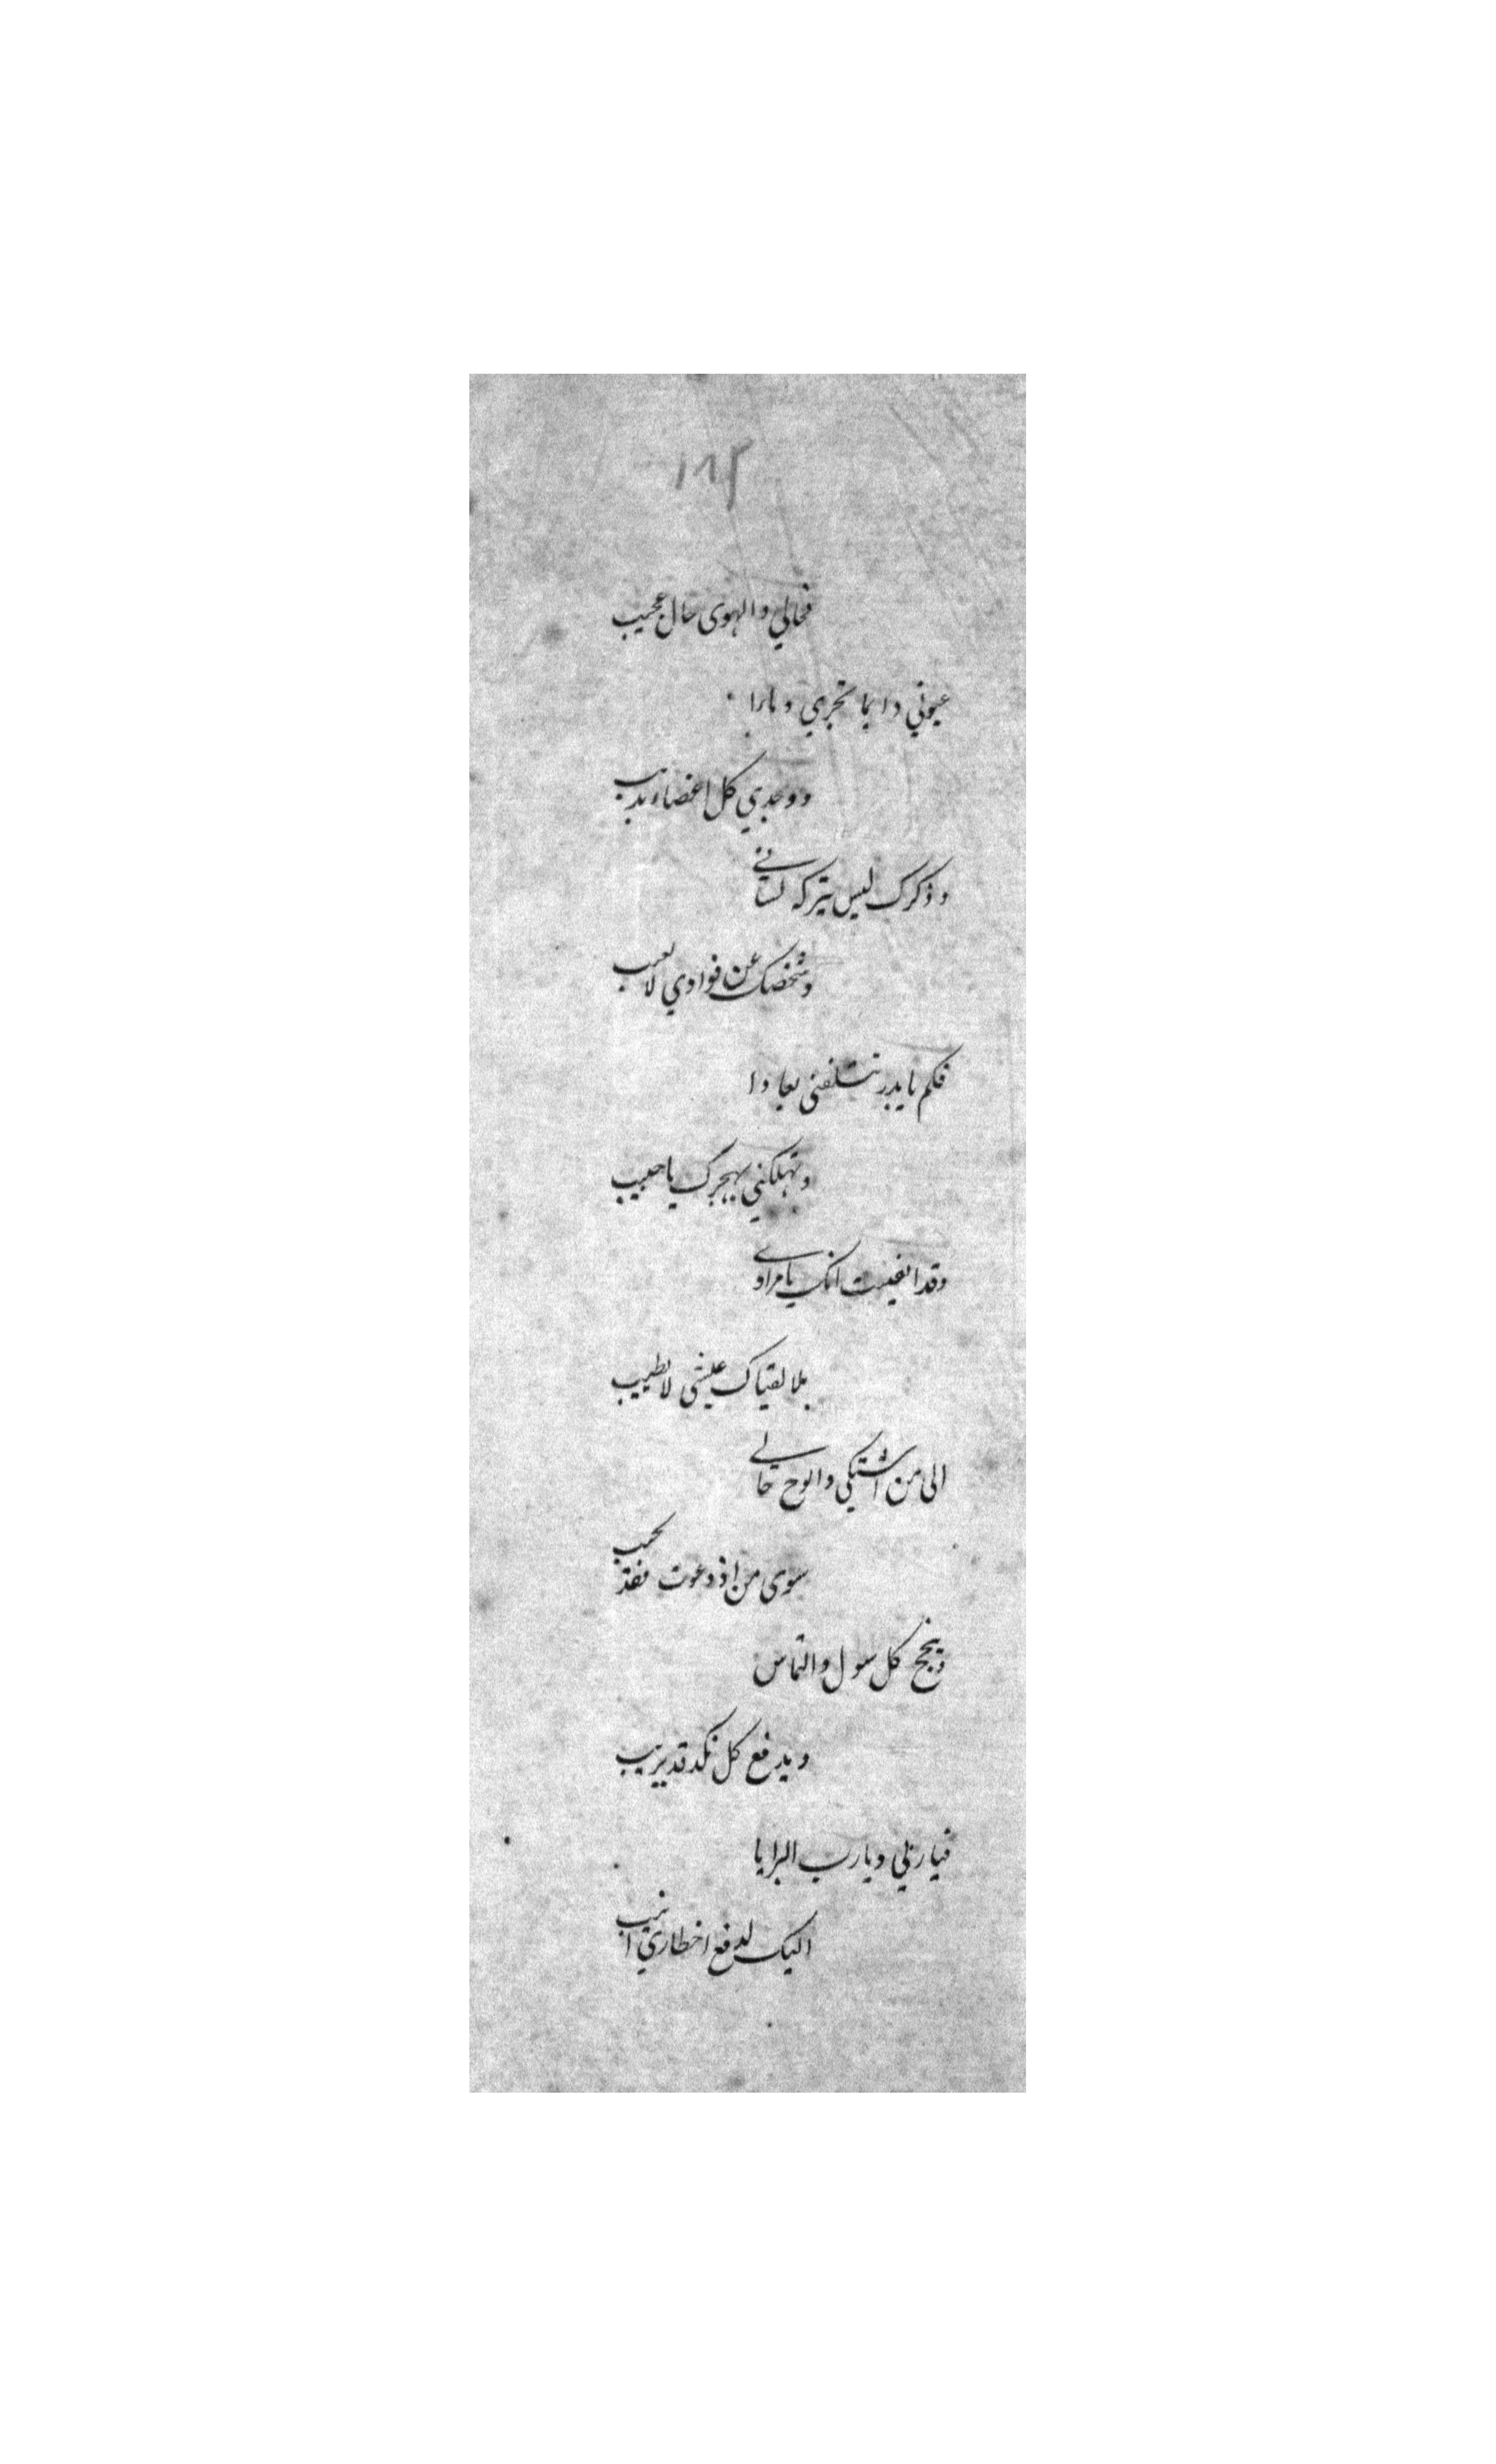 ١٨٢
فحالي والهوى حال عجيب
عيوني دايما تجري ونارا
ووجدي كل اعضاء يذيب
وذكرك ليس يتركه لساني
وشخصك عن فوادي لا يغيب
فكم يا بدر تتلفني بعادا
وتهلكني بهجرك يا حبيب
وقد ايقنت انك يا مرادي
بلا لقياك عيشي لا يطيب
الى من اشتكي وابوح حالي
سوى من اذ دعوت فقد يجيب
وينجح كل سول والتماس
ويدفع كل نكد قد يريب
فيا ربي ويا رب البرايا
اليك لدفع اخطاري انيب